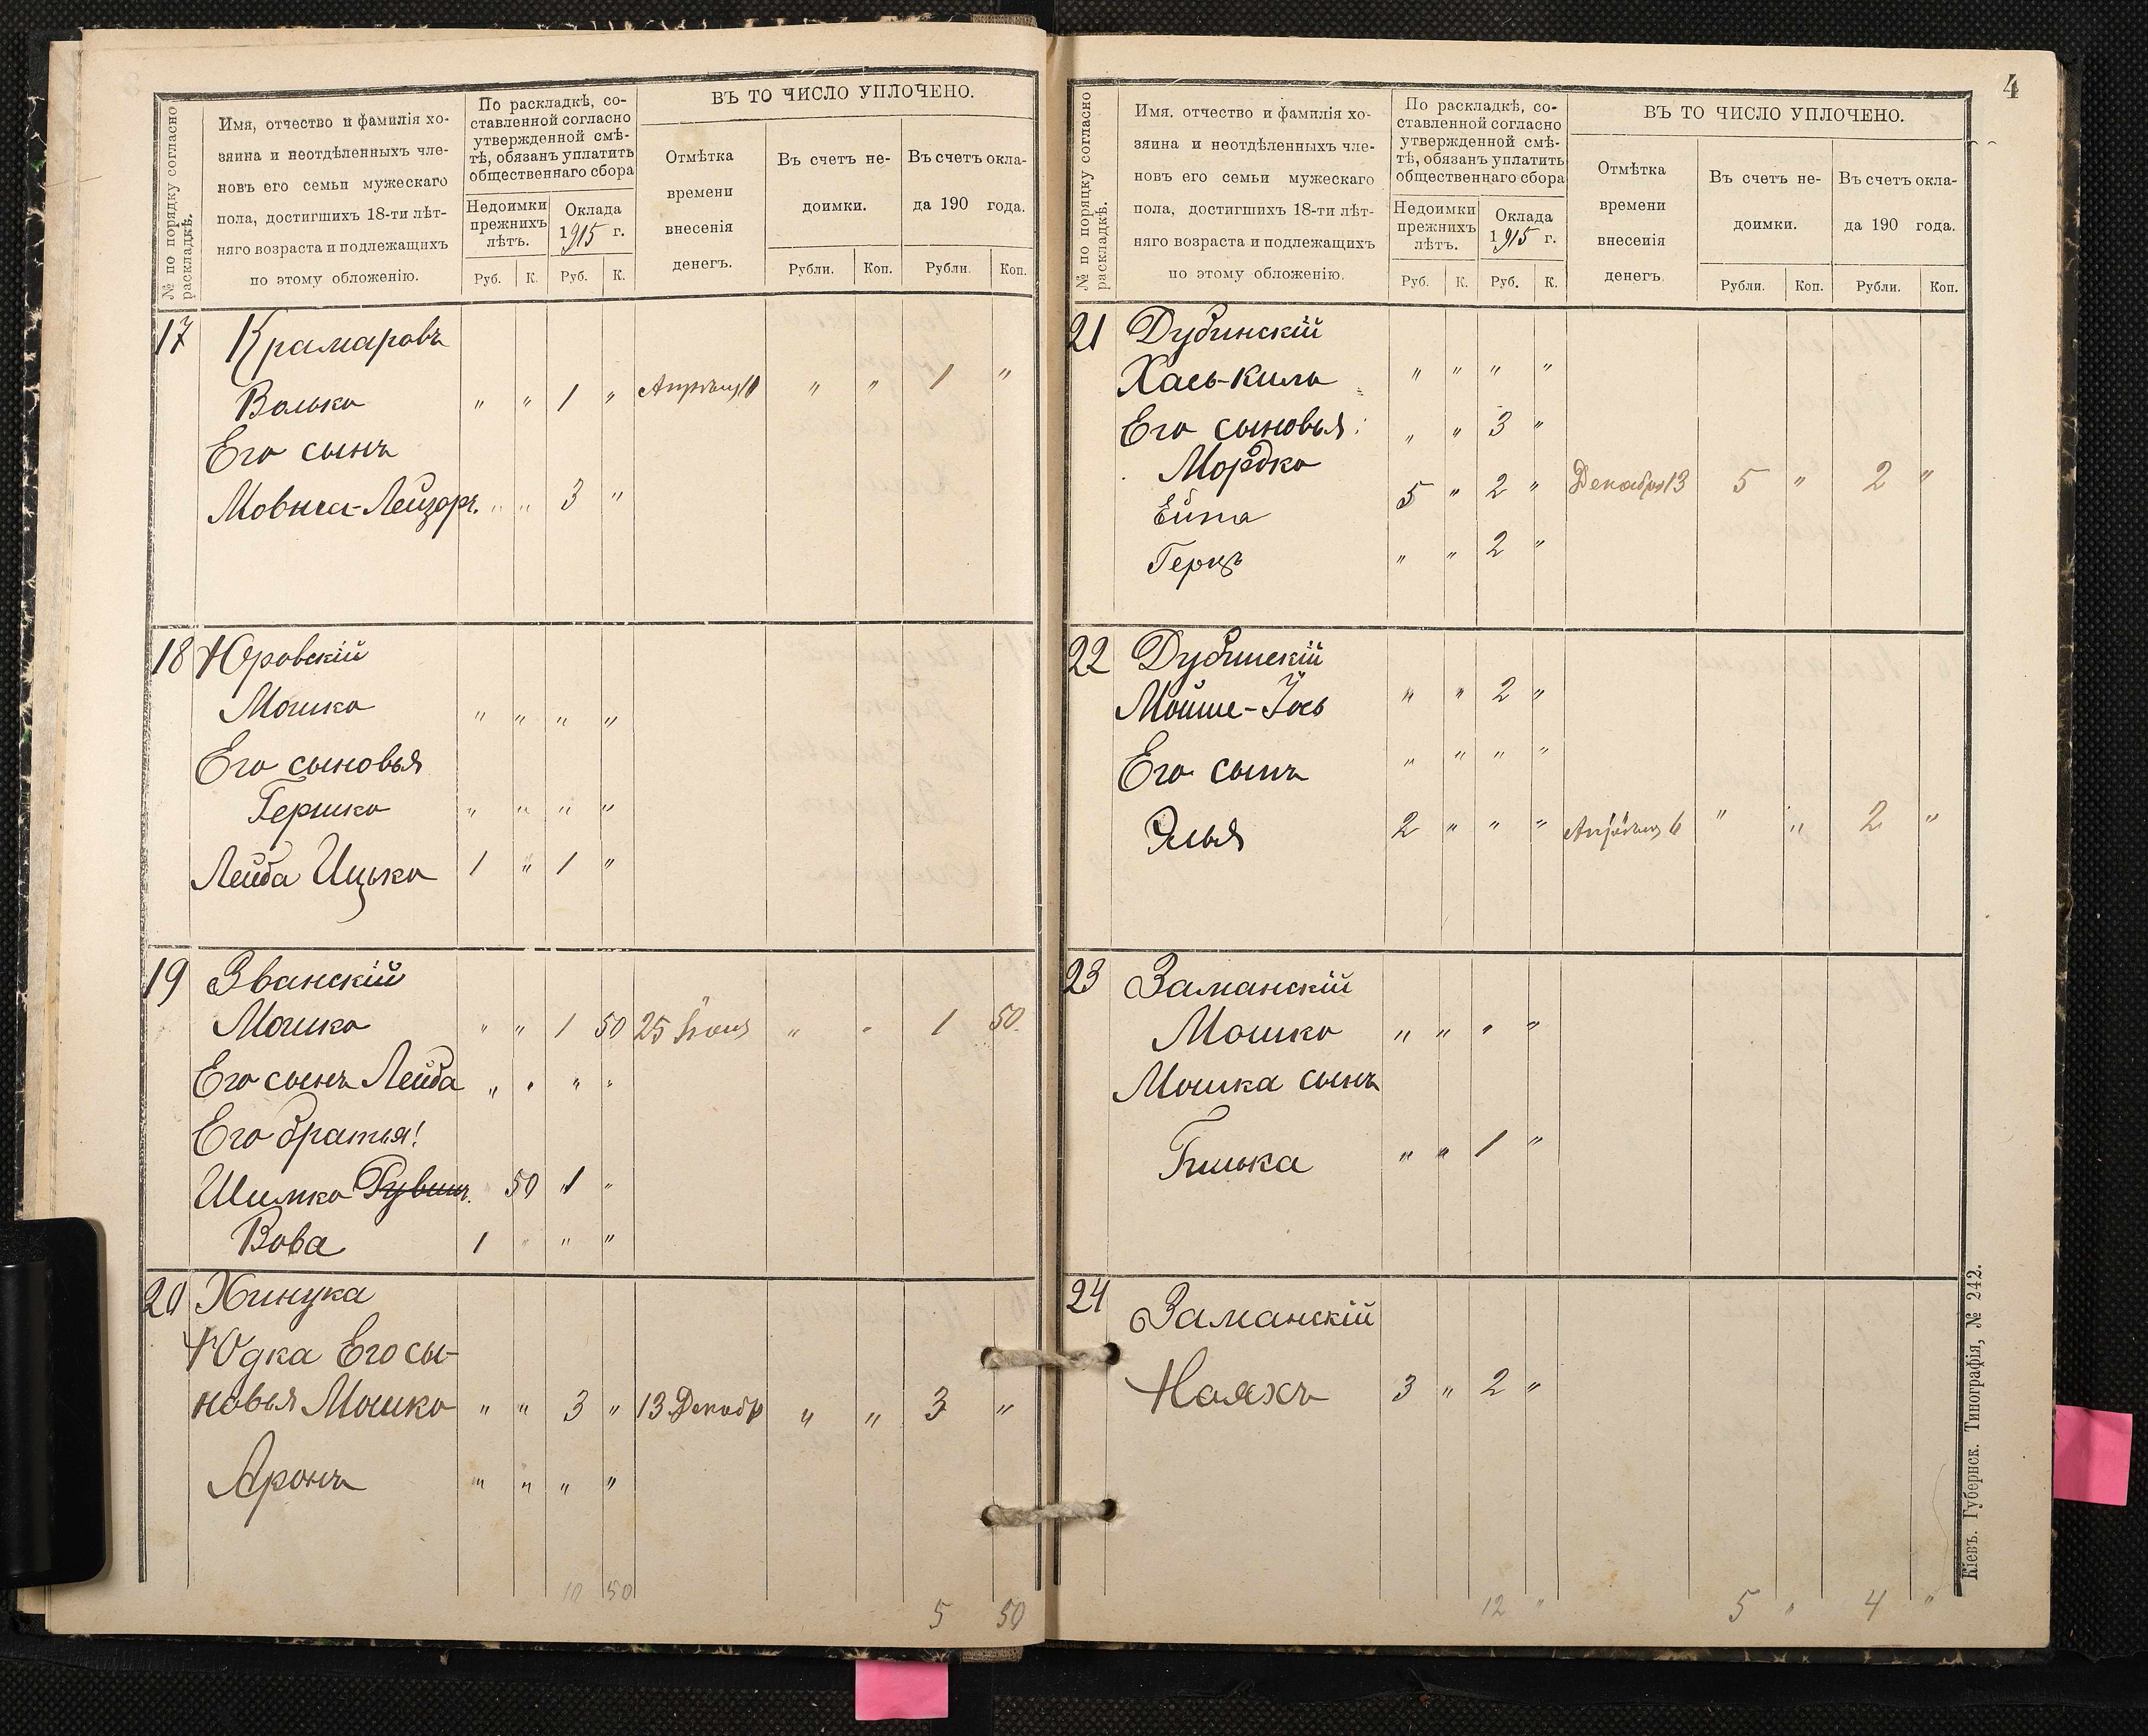 № по порядку согласно раскладкѣ.
Имя, отчество и фамилія хо-
зяина и неотдѣленныхъ чле-
новъ его семьи мужескаго
пола, достигшихъ 18-ти лѣт-
няго возраста и подлежащихъ
по этому обложенію.
По раскладкѣ, со-
ставленной согласно
утвержденной смѣ-
тѣ, обязанъ уплатить
общественнаго сбора
Недоимки
прежнихъ
лѣтъ.
Оклада
1915 г.
Руб. К. Руб. К.
ВЪ ТО ЧИСЛО УПЛОЧЕНО.
Отмѣтка
времени
внесенія
денегъ.
Въ счетъ не-
доимки.
Въ счетъ окла-
да 190 года.
Рубли. Коп. Рубли. Коп.
17 Крамаровъ
Волько " " 1 " " " 1 "
Его сынъ
Мовша-Лейзоръ. " " 3 "
18 Юровскій
Мошко " " " "
Его сыновья
Гершко " " " "
Лейба Ицько 1 " 1 "
19 Званскій
Мошко " " 1 50 25 Іюня " " 1 50
Его сынъ Лейба " " " "
Его братья!
Шимко Рувинъ. 50 1 "
Вова 1 " " "
20 Хинука
Юдка Его сы-
новья Мошко " " 3 " 13 Декабр " " 3 "
Аронъ " " " "
10 50
5 50
4
№ по порядку согласно раскладкѣ.
Имя, отчество и фамилія хо-
зяина и неотдѣленныхъ чле-
новъ его семьи мужескаго
пола, достигшихъ 18-ти лѣт-
няго возраста и подлежащихъ
по этому обложенію.
По раскладкѣ, со-
ставленной согласно
утвержденной смѣ-
тѣ, обязанъ уплатить
общественнаго сбора
Недоимки
прежнихъ
лѣтъ.
Оклада
1915 г.
Руб. К. Руб. К.
ВЪ ТО ЧИСЛО УПЛОЧЕНО.
Отмѣтка
времени
внесенія
денегъ.
Въ счетъ не-
доимки.
Въ счетъ окла-
да 190 года.
Рубли. Коп. Рубли. Коп.
21 Дубинскій
Хась-Киль " " " "
Его сыновья: " " 3 "
Мордко
Ейна 5 " 2 " Декабря 13 5 " 2 "
Герцъ " " 2 "
22 Дубинскій
Мойше-Іось " " 2 "
Его сынъ " " " "
Элья 2 " " " 6 " " 2 "
23 Заманскій
Мошко " " " "
Мошка сынъ
" " 1 "
24 Заманскій
Нояхъ 3 " 2 "
12 " 5 " 4 "
Кіевъ. Губернск. Типографія, № 242.